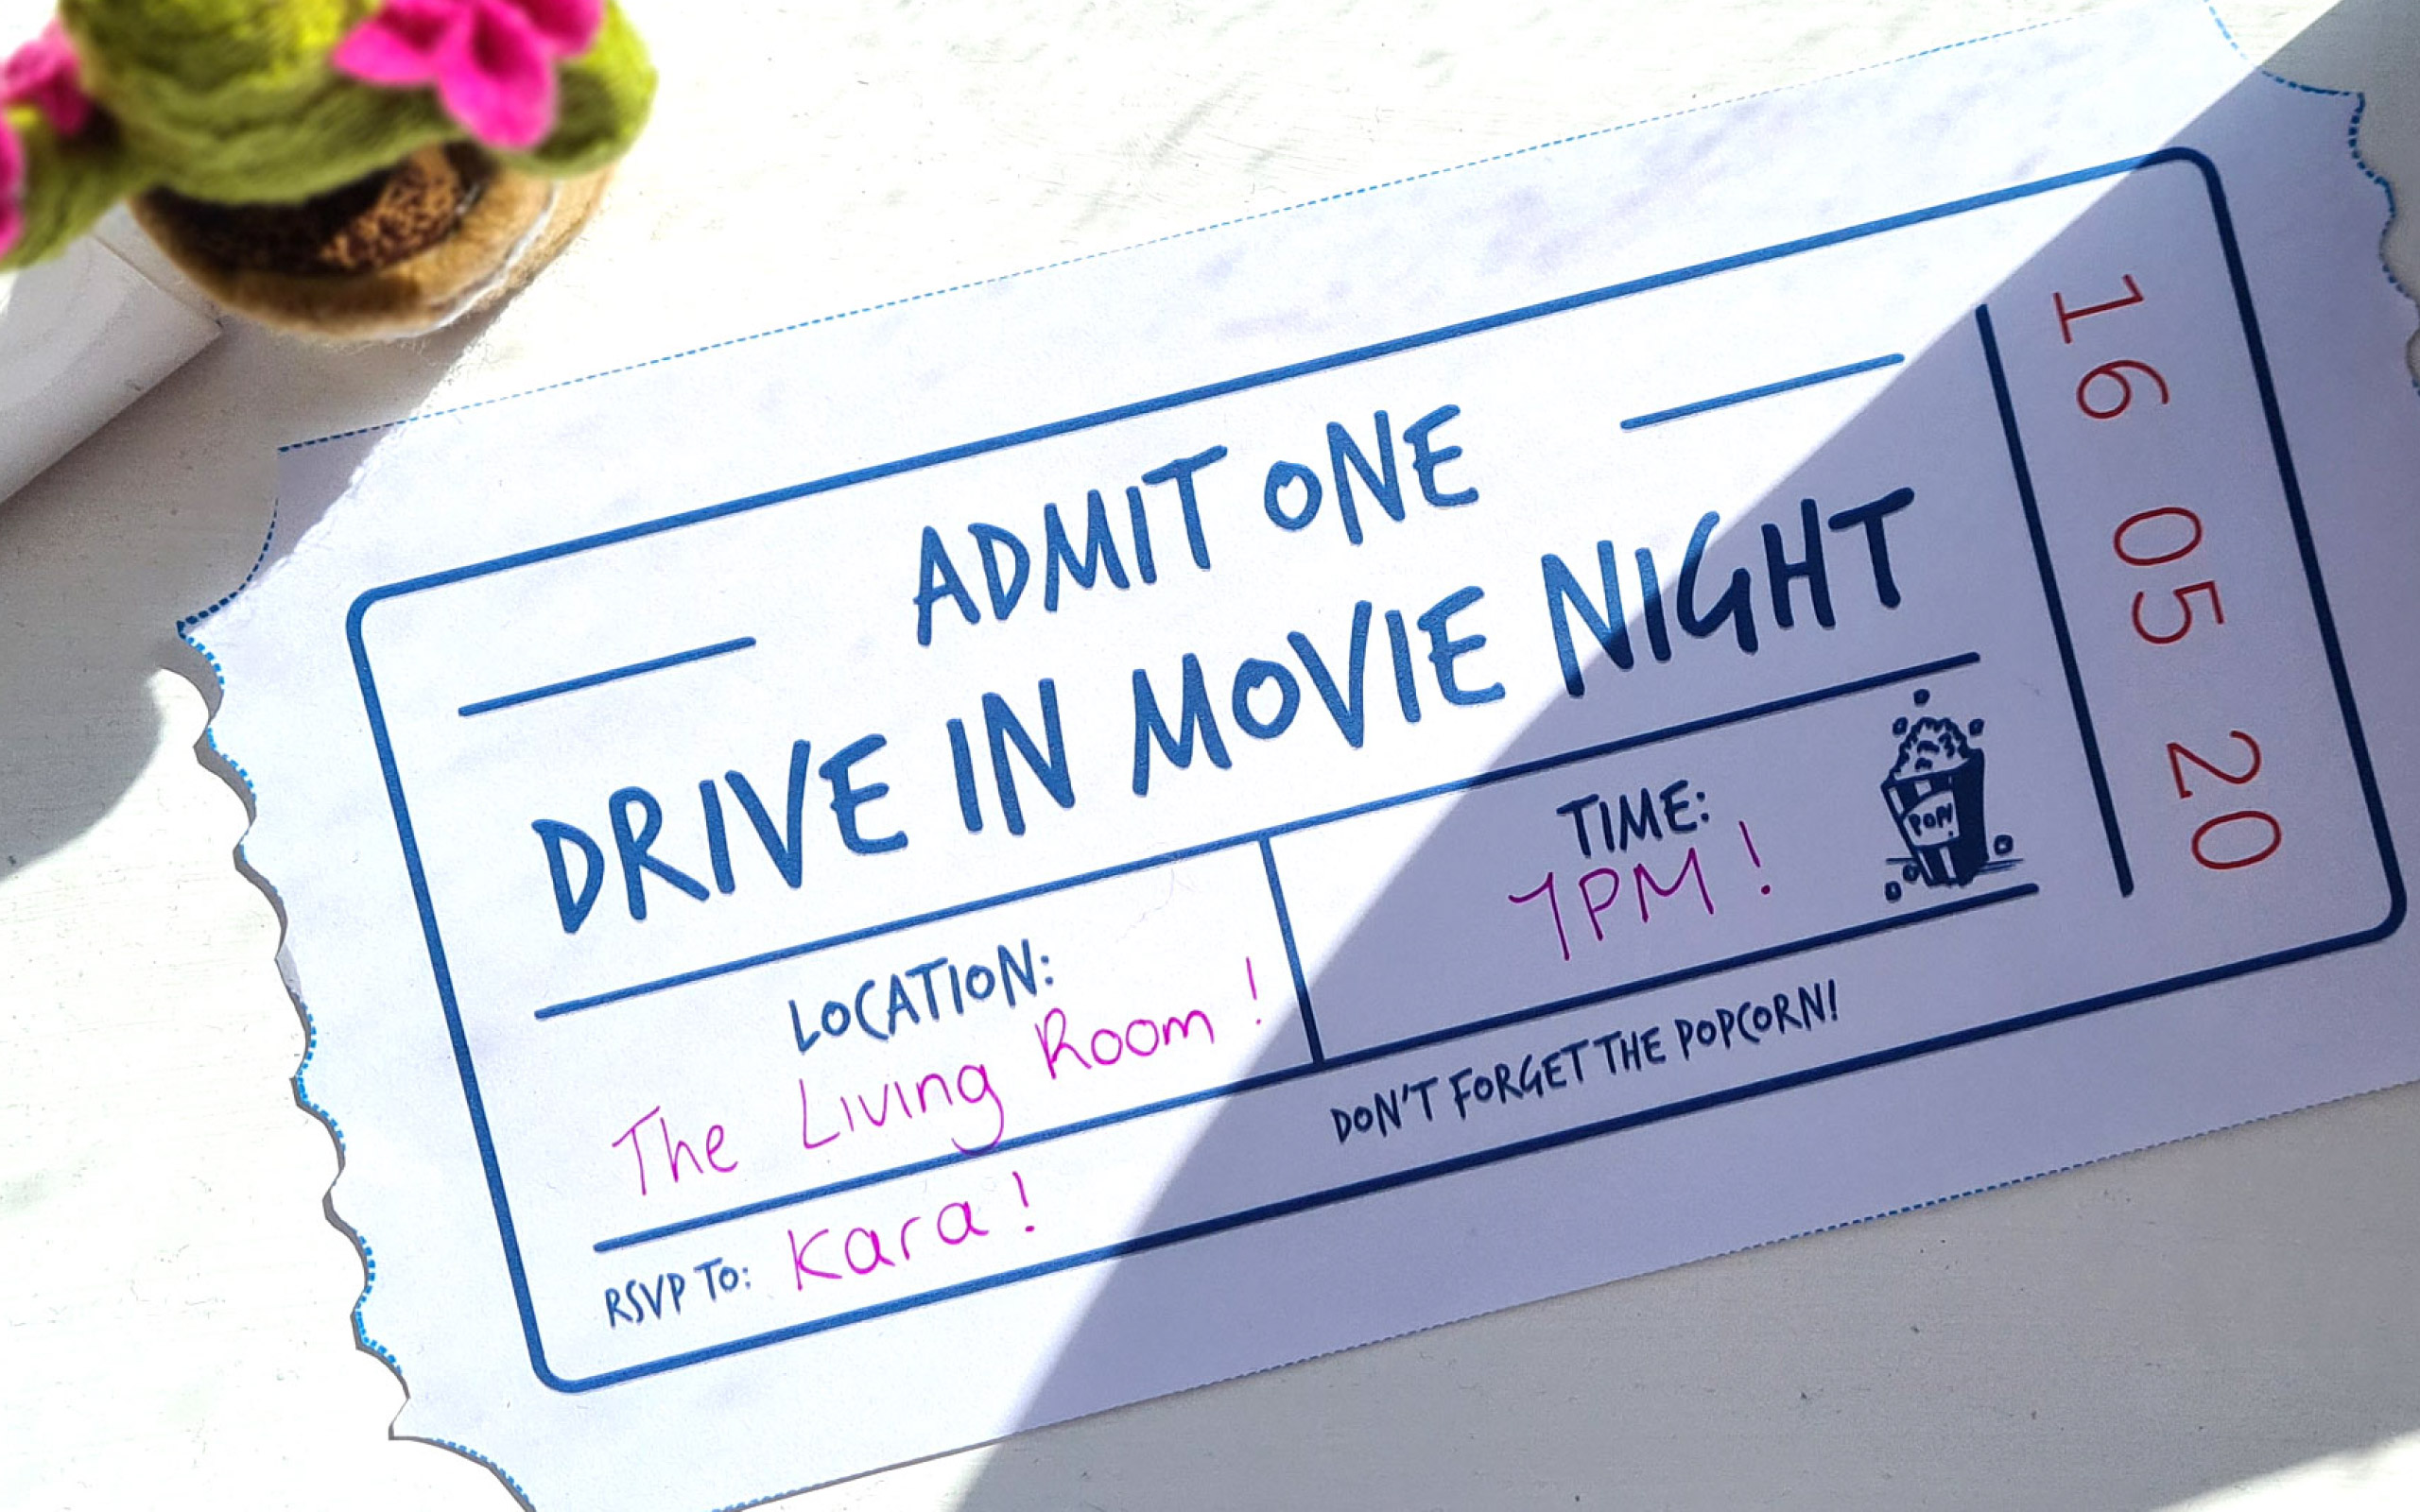 ADMIT ONE
DRIVE IN MOVIE NIGHT
LOCATION:
The Living Room!
TIME:
7PM!
POP!
RSVP TO: Kara!
DON'T FORGET THE POPCORN!
16 05 20